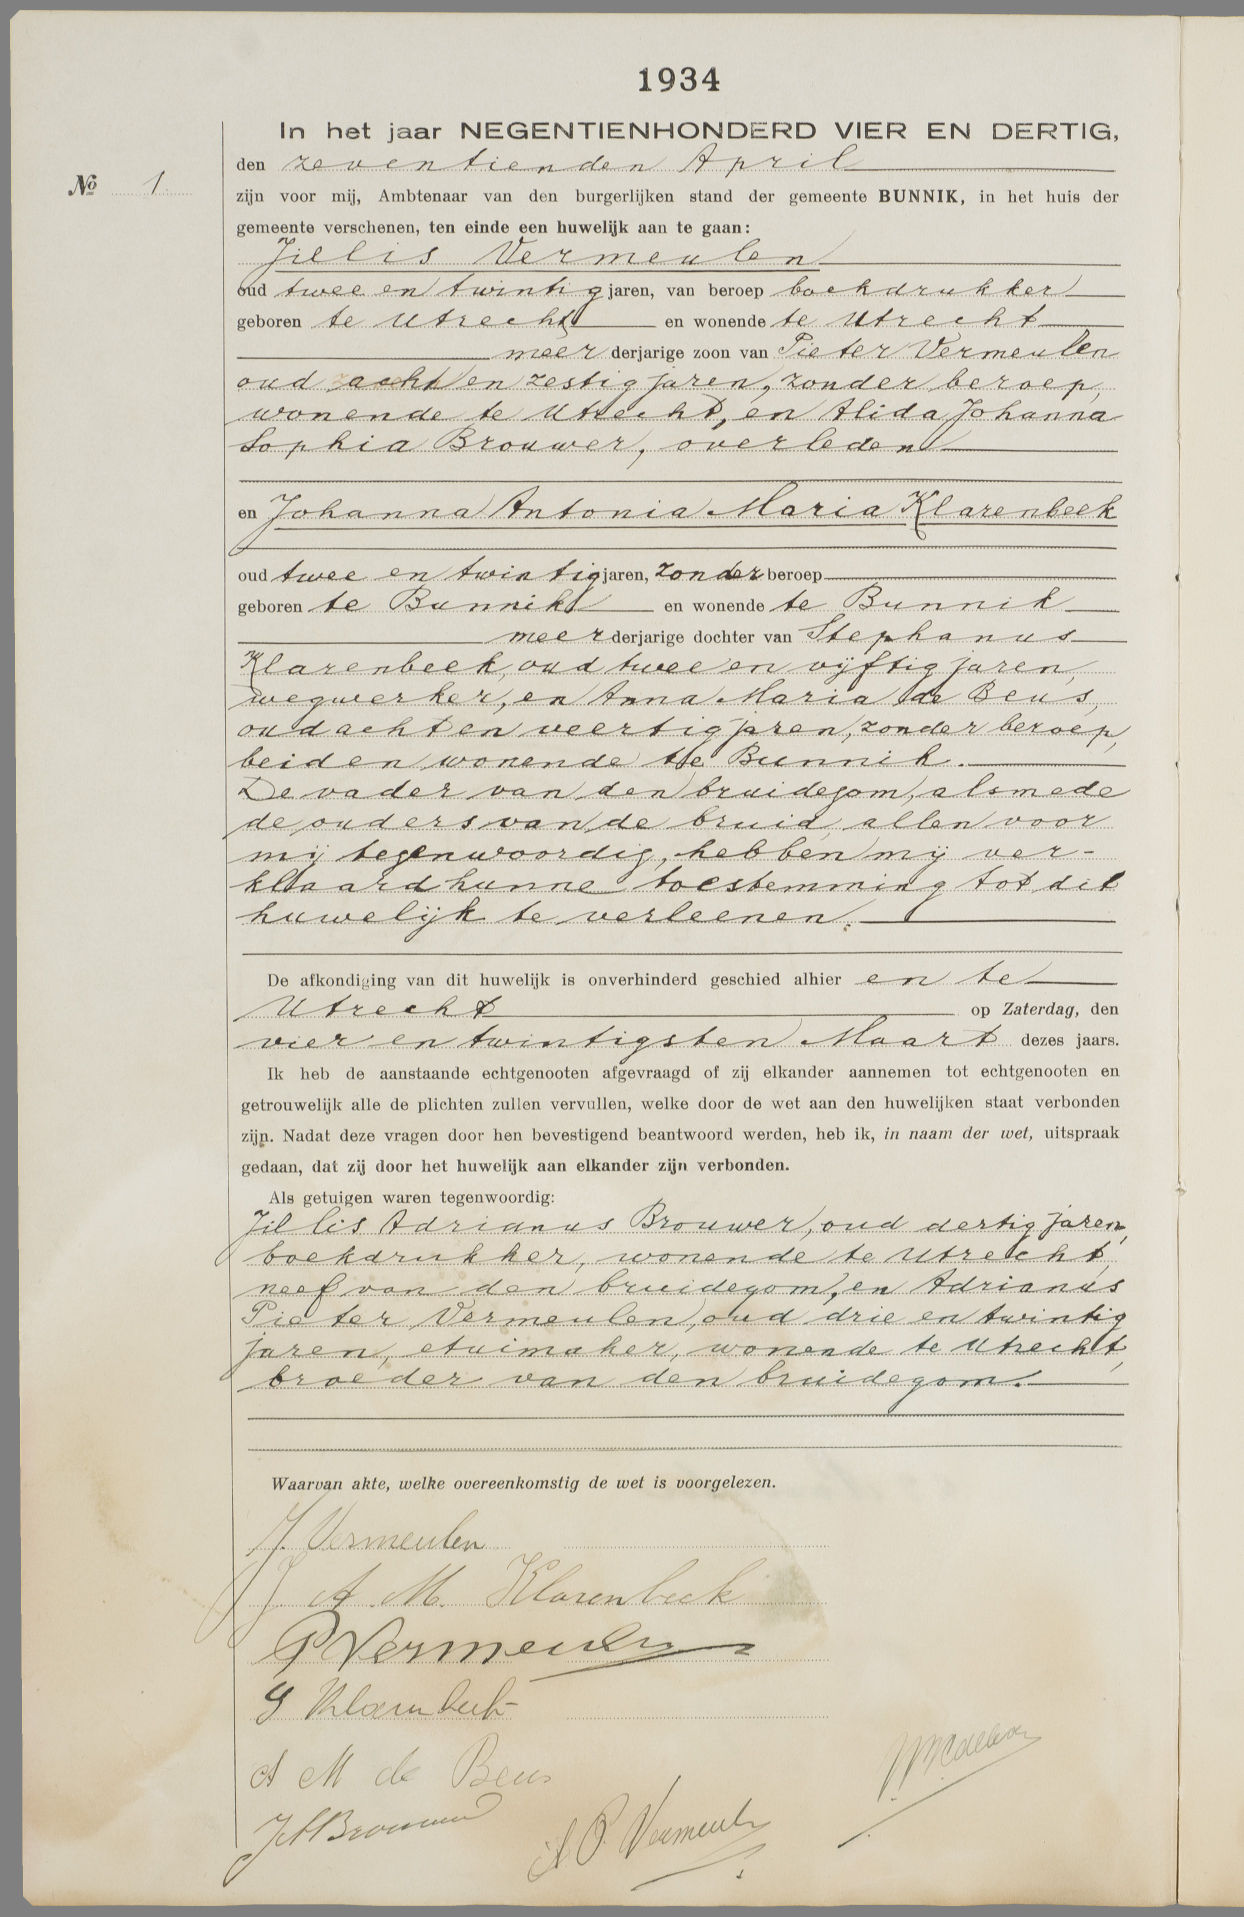 1934
In het jaar NEGENTIENHONDERD VIER EN DERTIG,
den zeventienden April
No 1
zijn voor mij, Ambtenaar van den burgerlijken stand der gemeente BUNNIK, in het huis der
gemeente verschenen, ten einde een huwelijk aan te gaan:
Jillis Vermeulen
oud twee en twintig jaren, van beroep boekdrukker
geboren te Utrecht en wonende te Utrecht
meer derjarige zoon van Pieter Vermeulen
oud acht en zestig jaren, zonder beroep,
wonende te Utrecht, en Alida Johanna
Sophia Brouwer, overleden
en Johanna Antonia Maria Klarenbeek
oud twee en twintig jaren, zonder beroep
geboren te Bunnik en wonende te Bunnik
meer derjarige dochter van Stephanus
Klarenbeek, oud twee en vijftig jaren,
wegwerker, en Anna Maria de Beus,
oud acht en veertig jaren, zonder beroep,
beiden wonende te Bunnik.
De vader van den bruidegom, alsmede
de ouders van de bruid, allen voor
mij tegenwoordig, hebben mij ver-
klaard hunne toestemming tot dit
huwelijk te verleenen.
De afkondiging van dit huwelijk is onverhinderd geschied alhier en te
Utrecht op Zaterdag, den
vier en twintigsten Maart dezes jaars.
Ik heb de aanstaande echtgenooten afgevraagd of zij elkander aannemen tot echtgenooten en
getrouwelijk alle de plichten zullen vervullen, welke door de wet aan den huwelijken staat verbonden
zijn. Nadat deze vragen door hen bevestigend beantwoord werden, heb ik, in naam der wet, uitspraak
gedaan, dat zij door het huwelijk aan elkander zijn verbonden.
Als getuigen waren tegenwoordig:
Jillis Adrianus Brouwer, oud dertig jaren,
boekdrukker, wonende te Utrecht,
neef van den bruidegom, en Adrianus
Pieter Vermeulen, oud drie en twintig
jaren, etuimaker, wonende te Utrecht,
broeder van den bruidegom.
Waarvan akte, welke overeenkomstig de wet is voorgelezen.
J. Vermeulen
J. A. M. Klarenbeek
P Vermeulen
S Klarenbeek
A M de Beus
JA Brouwer
A. P. Vermeulen